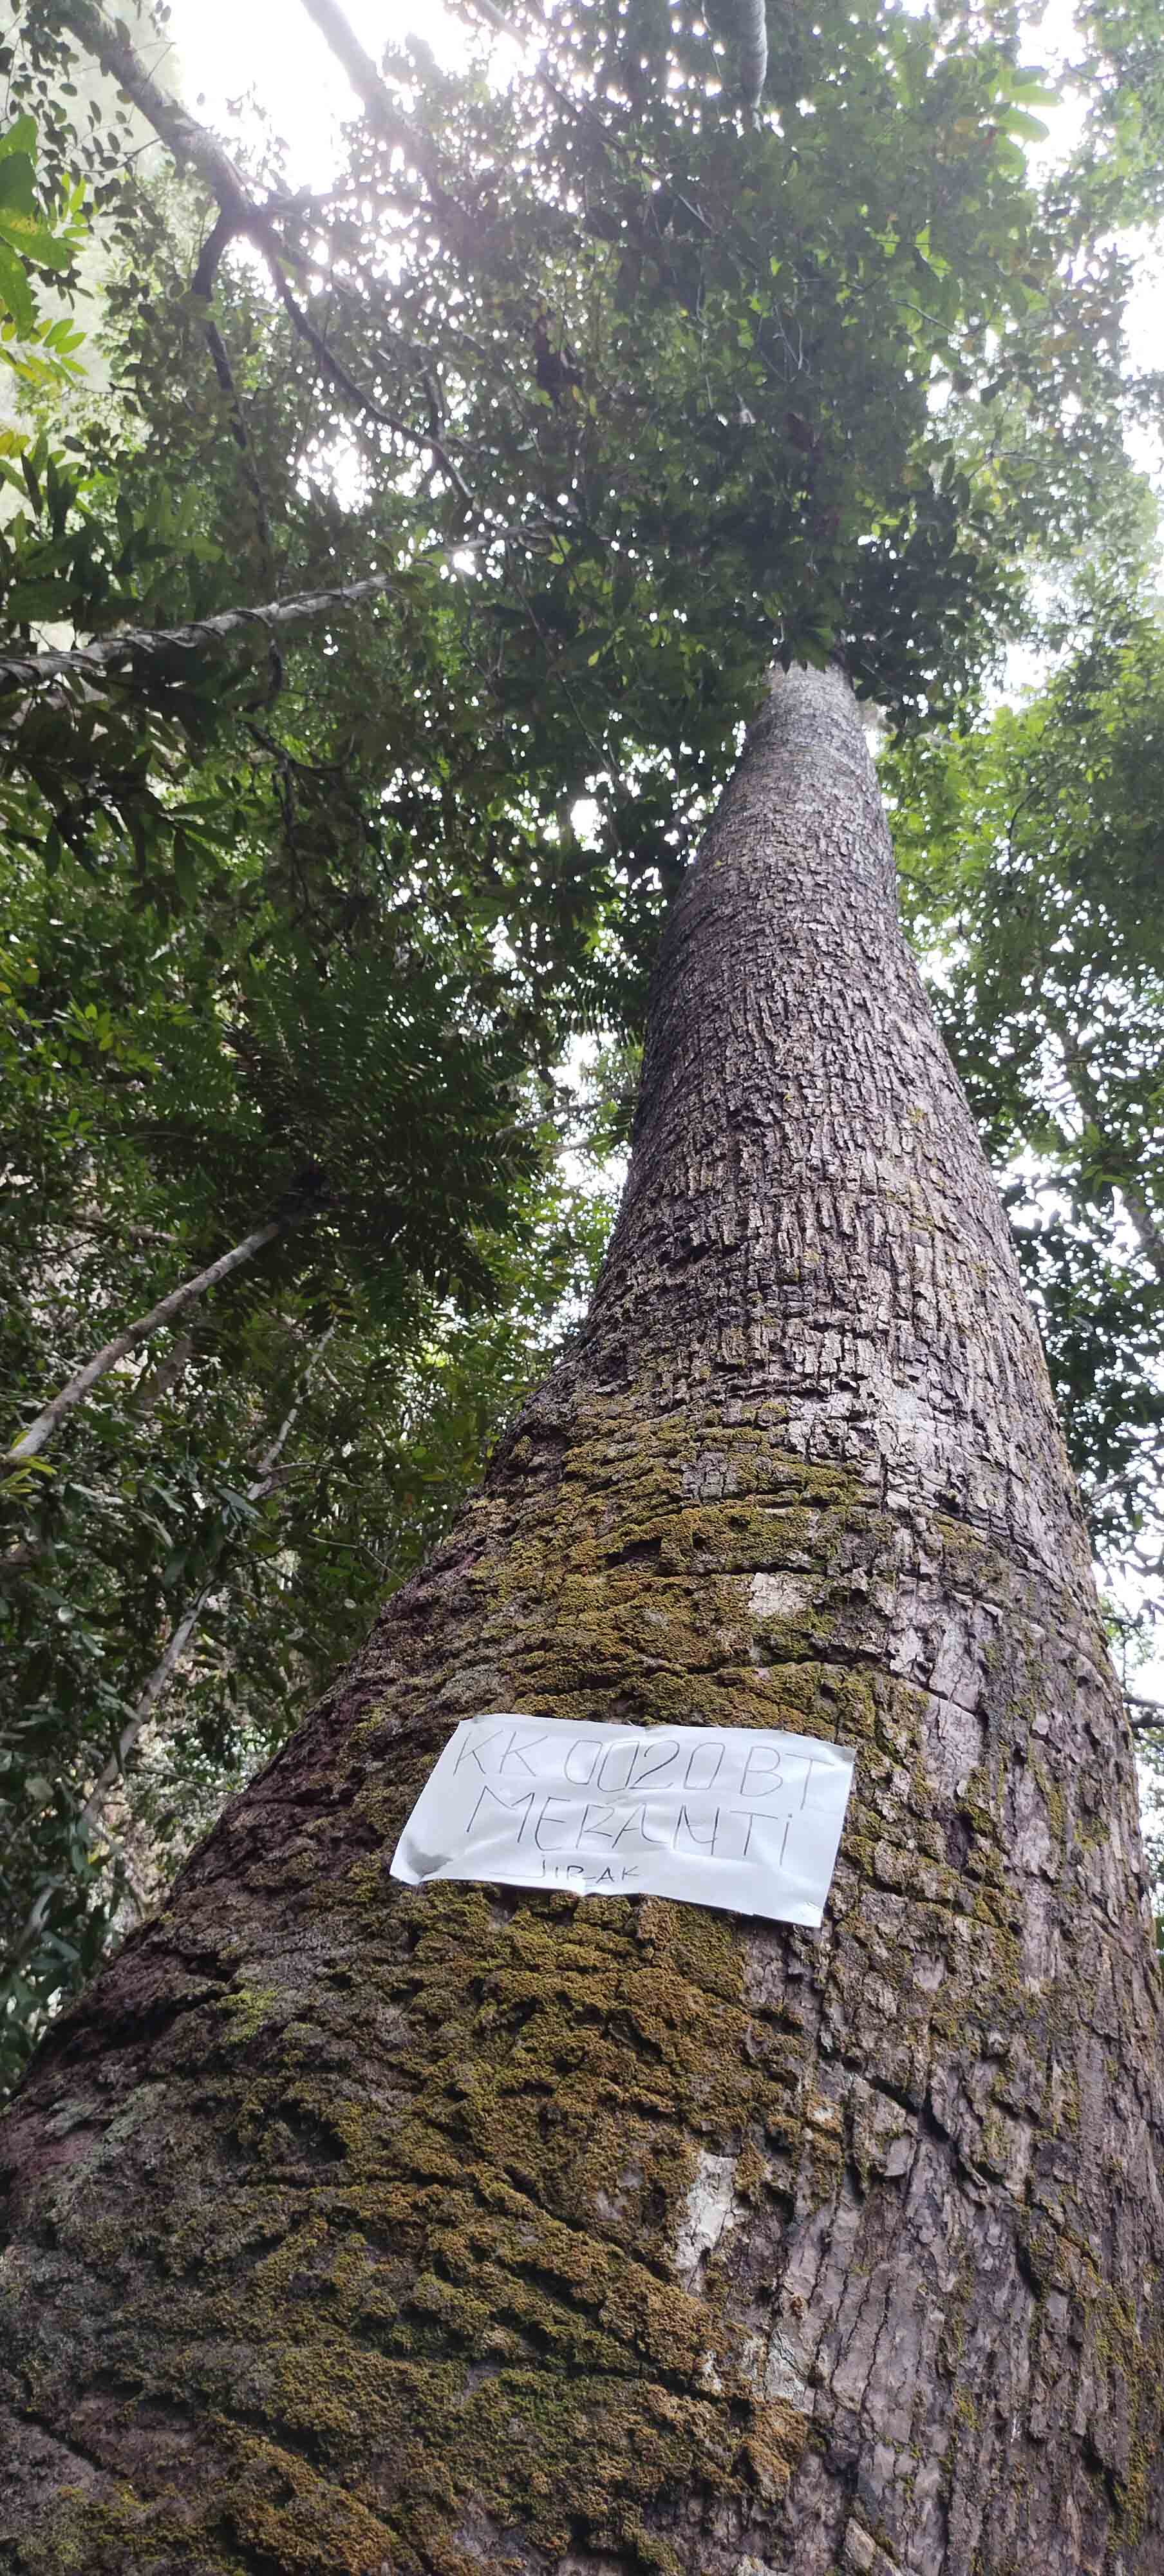 KK 0020 BT
MERANTi
JIRAK